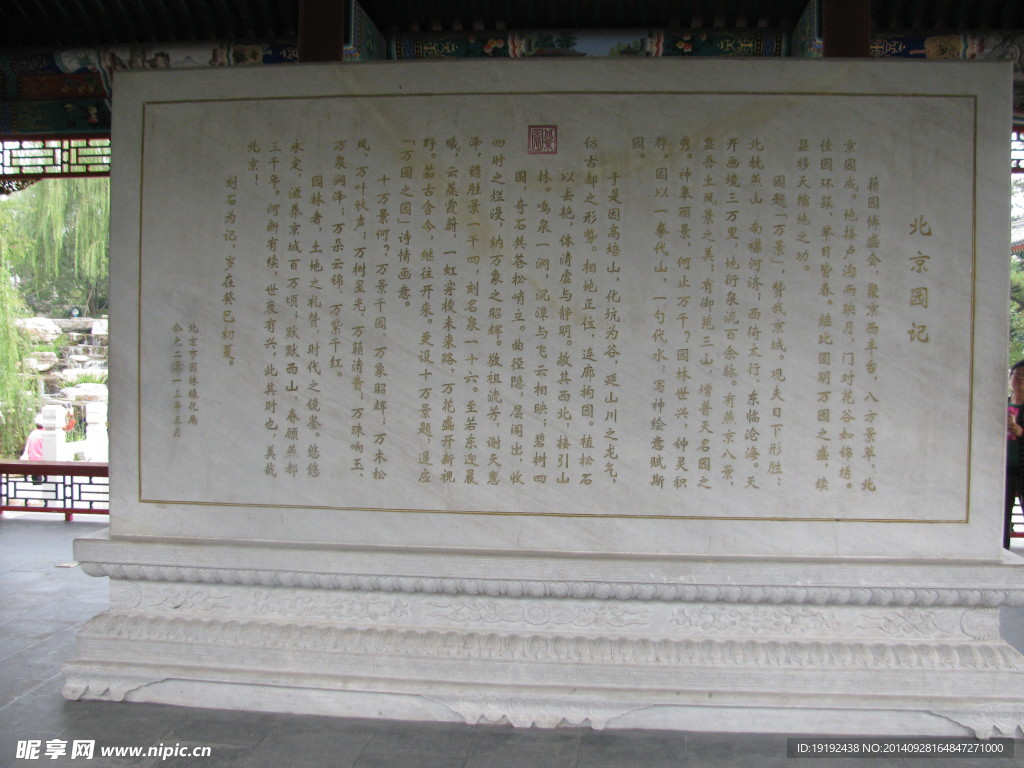 北京园记
籍园博盛会，聚京西丰台，八方景萃，北
京园成。地挂卢沟两映月，门对花谷如锦绣。
佳园环簇，举目皆春。继比图开万园之盛，续
显移天缩地之功。
园题「万景」，赞我京城。观夫日下形胜：
北枕燕山，南襟河济；西倚太行，东临沧海。天
开画境三万里，地衍泉流百余脉。有燕京八景，
显吾土风景之美；有御苑三山，增普天名园之
秀。神皋丽景，何止万千？园林世兴，钟灵积
粹。园以一拳代山，一勺代水，写神绘意赋斯
园。
于是因高培山，化坑为谷，延山川之龙气，
仿古都之形势。相地正位，连廊构园。植松石
以去艳，体清虚与静明。故其西北，接引山
林。鸣泉一涧，沉潭与飞云相映；碧树四
围，奇石共苍松峭立。曲径隐，层阁出，收
四时之烂漫，纳万象之昭辉。敞祖流芳，谢天惠
泽，镌胜景一千四，刻名泉一十六。至若东迎晨
曦，云蒸霞蔚，一虹穿梭来东路，万花盛开新视
野。茹古含今，继往开来。更设十万景题，遥应
「万园之园」诗情画意。
十万景何？万景千园、万象昭辉；万木松
风、万叶秋声；万树星光、万籁清音；万珠响玉、
万泉润泽；万朵云锦、万紫千红。
园林者，土地之礼赞，时代之镜鉴。悠悠
永定，滋养京城百万顷；默默西山，眷顾燕都
三千年。河渐有续，世衰有兴，此其时也，美哉
北京！
刻石为记，岁在癸巳初夏。
北京市园林绿化局
公元二零一三年五月
昵享网 www.nipic.cn
ID:19192438 NO:20140928164847271000